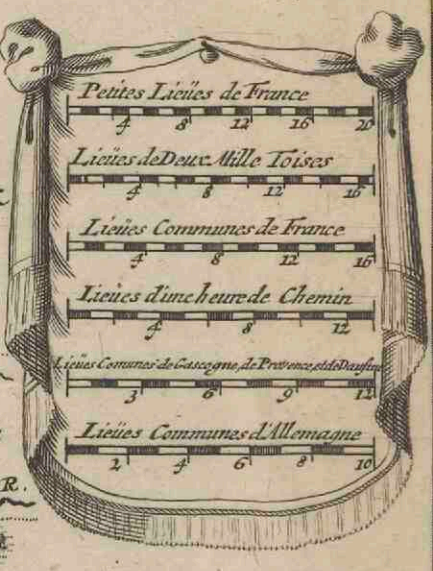 Petites Lieües de France
4 8 12 16 20
Lieües de Deux Mille Toises
4 8 12 16
Lieües Communes de France
4 8 12 16
Lieües d'une heure de Chemin
4 8 12
Lieües Comunes de Gascogne, de Provence, et de Daufiné
3 6 9 12
Lieües Communes d'Allemagne
2 4 6 8 10
R.